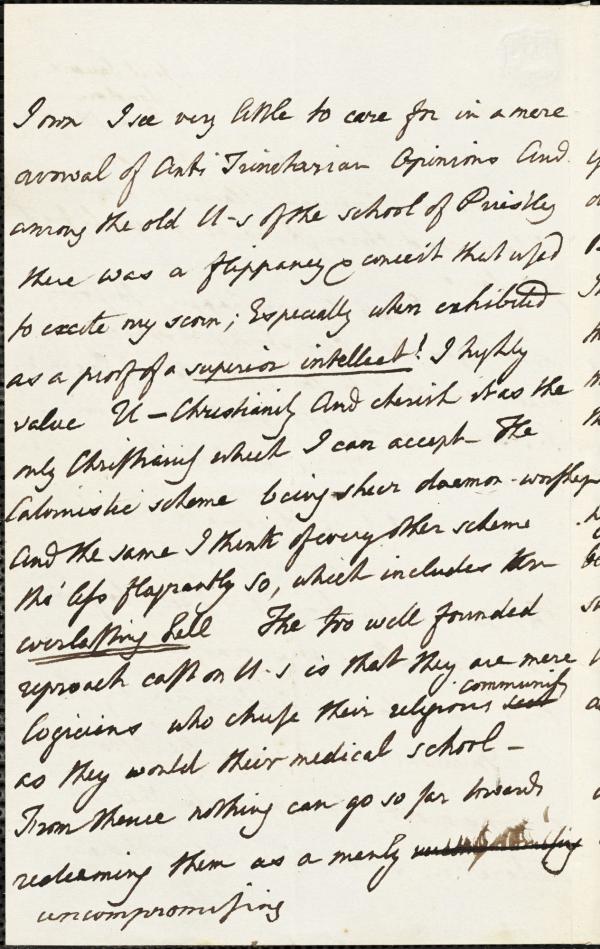 I own I see very little to care for in a mere
avowal of Anti Trinitarian Opinions And
among the old U-s of the school of Priestley
there was a flippancy & conceit that used
to excite my scorn; Especially when exhibited
as a proof of a superior intellect! I highly
value U-Christianity And cherish it as the
only Christianity which I can accept - The
Calvinistic scheme being sheer daemon-worship
And the same I think of every other scheme
tho' less flagrantly so, which includes
everlasting hell The too well founded
reproach cast on U-s is that they are mere
logicians who chuse their religious community
as they would their medical school -
From thence nothing can go so far towards
redeeming them as a manly
uncompromising